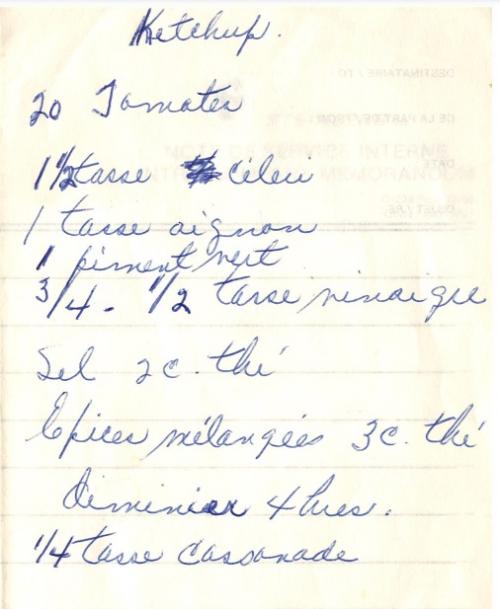 Ketchup.
20 Tomates
1 1/2 tasse céleri
1 tasse oignon
1 piment vert
3/4 - 1/2 tasse vinaigre
Sel 2 c. thé
Epices mélangées 3 c. thé
Diminier 4 hres.
1/4 tasse cassonade
DESTINATAIRE / TO
DE LA PART DE / FROM
NOTE DE SERVICE INTERNE
MEMORANDUM
DATE
OBJET / RE